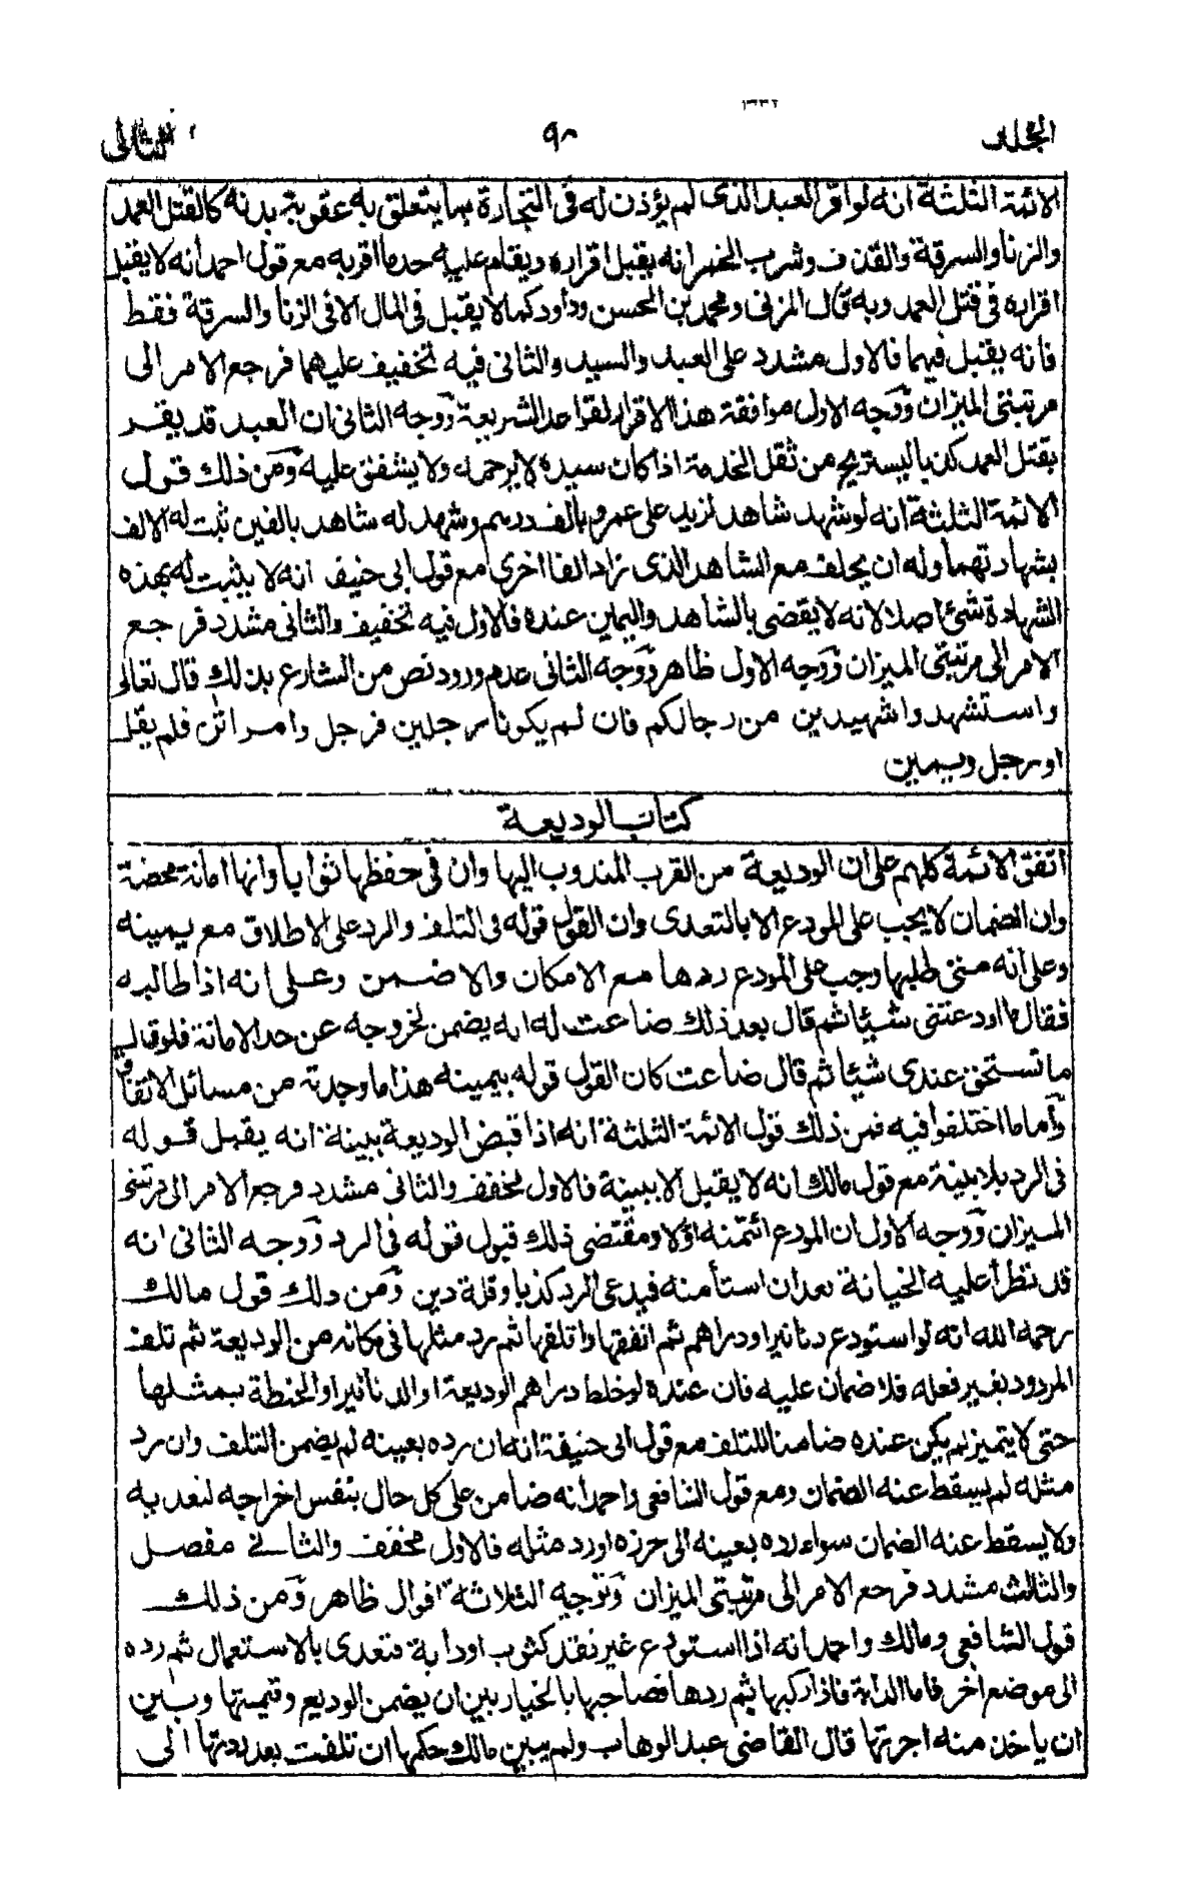 المجلد ٩٠ الثانى
الائمة الثلثة انه لو اقر العبد الذى لم يؤذن له فى التجارة بما يتعلق به عقوبة بدنه كالقتل العمد
والزنا والسرقة والقذف وشرب الخمر انه يقبل اقراره ويقام عليه حد ما اقربه مع قول احمد انه لا يقبل
اقراره فى قتل العمد وبه قال المزنى ومحمد بن الحسن وداود كما لا يقبل فى المال الا فى الزنا والسرقة فقط
فانه يقبل فيهما فالاول مشدد على العبد والسيد والثانى فيه تخفيف عليهما فرجع الامر الى
مرتبتى الميزان ووجه الاول موافقة هذا الاقرار لقواعد الشريعة ووجه الثانى ان العبد قد يقر
بقتل العمد كذبا ليستريح من ثقل الخدمة اذا كان سيده لا يرحمه ولا يشفق عليه ومن ذلك قول
الائمة الثلثة انه لو شهد شاهد لزيد على عمرو بالف درهم وشهد له شاهد بالفين ثبت له الالف
بشهادتهما وله ان يحلف مع الشاهد الذى زاد الفا اخرى مع قول ابى حنيفة انه لا يثبت له بهذه
الشهادة شئ اصلا لانه لا يقضى بالشاهد واليمين عنده فالاول فيه تخفيف والثانى مشدد فرجع
الامر الى مرتبتى الميزان ووجه الاول ظاهر ووجه الثانى عدم ورود نص من الشارع بذلك قال تعالى
واستشهدوا شهيدين من رجالكم فان لم يكونا رجلين فرجل وامراتن فلم يقل
او رجل ويمين
كتاب الوديعة
اتفق الائمة كلهم على ان الوديعة من القرب المندوب اليها وان فى حفظها ثوابا وانها امانة محضة
وان الضمان لا يجب على المودع الا بالتعدى وان القول قوله فى التلف والرد على الاطلاق مع يمينه
وعلى انه متى طلبها وجب على المودع ردها مع الامكان والا ضمن وعلى انه اذا طالبه
فقال ما اودعتنى شيئا ثم قال بعد ذلك ضاعت له انه يضمن لخروجه عن حد الامانة فلو قال
ما تستحق عندى شيئا ثم قال ضاعت كان القول قوله بيمينه هذا ما وجدته من مسائل الاتفاق
واما ما اختلفوا فيه فمن ذلك قول الائمة الثلثة انه اذا قبض الوديعة ببينة انه يقبل قوله
فى الرد بلا بينة مع قول مالك انه لا يقبل الا ببينة فالاول مخفف والثانى مشدد فرجع الامر الى مرتبتى
الميزان ووجه الاول ان المودع ائتمنه اولا ومقتضى ذلك قبول قوله فى الرد ووجه الثانى انه
قد تطرأ عليه الخيانة بعد ان استأمنه فيدعى الرد كذبا وقلة دين ومن ذلك قول مالك
رحمه الله انه لو استودع دنانير او دراهم ثم انفقها واتلفها ثم رد مثلها فى مكانه من الوديعة ثم تلف
المردود بغير فعله فلا ضمان عليه فان عنده لو خلط دراهم الوديعة او الدنانير او الحنطة بمثلها
حتى لا يتميز لم يكن عنده ضامنا للتلف مع قول ابى حنيفة انه ان رده بعينه لم يضمن التلف وان رد
مثله لم يسقط عنه الضمان ومع قول الشافعى واحمد انه ضامن على كل حال بنفس اخراجه لتعديه
ولا يسقط عنه الضمان سواء رده بعينه الى حرزه او رد مثله فالاول مخفف والثانى مفصل
والثالث مشدد فرجع الامر الى مرتبتى الميزان وتوجيه الثلاثة اقوال ظاهر ومن ذلك
قول الشافعى ومالك واحمد انه اذا استودع غير نقد كثوب او دابة فتعدى بالاستعمال ثم رده
الى موضع اخر فاما الدابة فاذا ركبها ثم ردها فصاحبها بالخيار بين ان يضمن الوديع وقيمتها وبين
ان ياخذ منه اجرتها قال القاضى عبد الوهاب ولم يبين مالك حكمها ان تلفت بعد ردتها الى